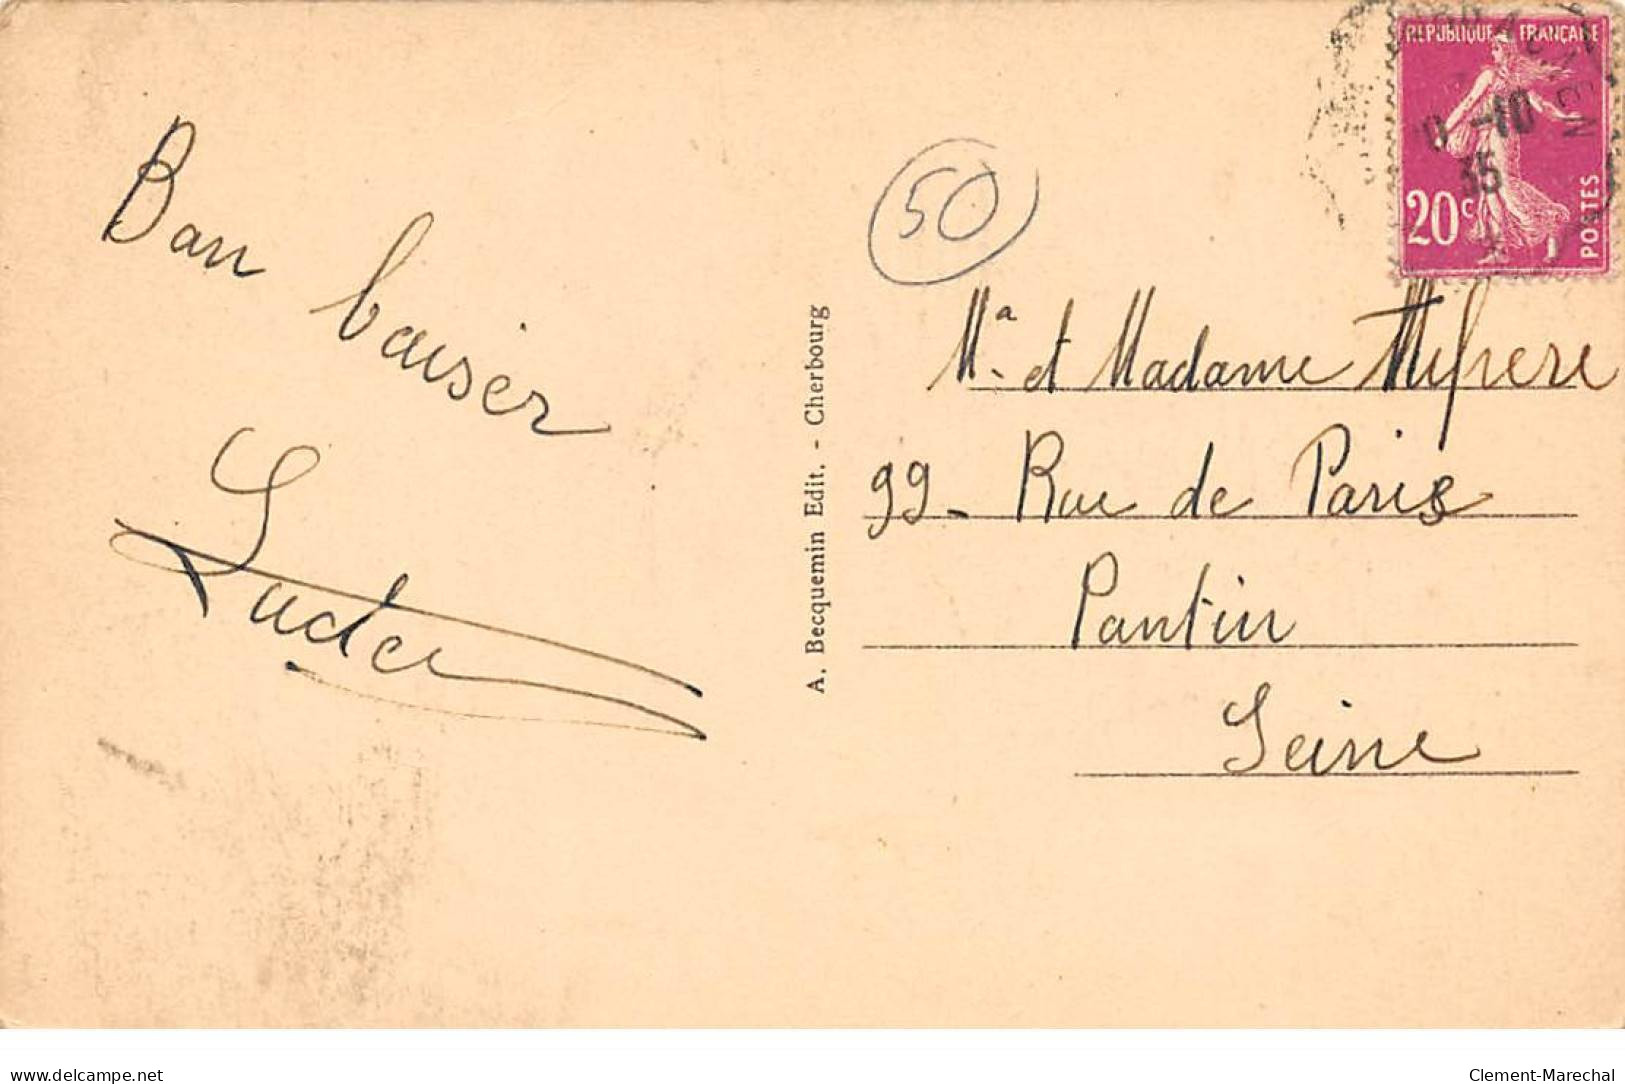 Bon
baiser
50
REPUBLIQUE FRANÇAISE
-10
35
20c
POSTES
A. Becquemin Edit. - Cherbourg
Mr et Madame
99 - Rue de Paris
Pantin
Seine
delcampe.net
Clement-Marechal